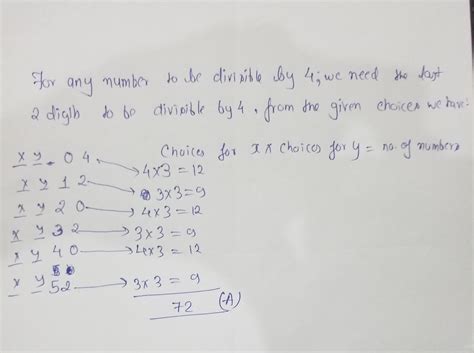 For any number to be divisible by 4, we need the last
2 digits to be divisible by 4, from the given choices we have:
Choices for x x choices for y = no. of numbers
x y 0 4 → 4x3 = 12
x y 1 2 → 3x3 = 9
x y 2 0 → 4x3 = 12
x y 3 2 → 3x3 = 9
x y 4 0 → 4x3 = 12
x y 52 → 3x3 = 9
72 (A)